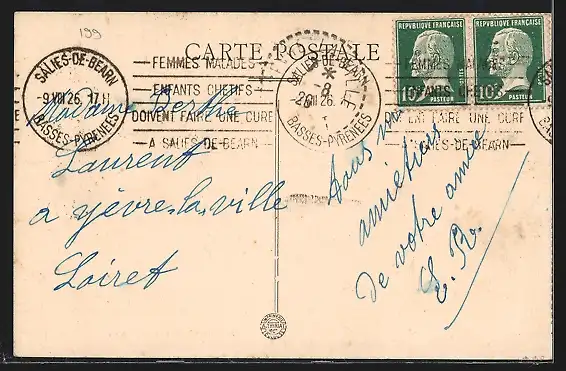 199
CARTE POSTALE
SALIES-DE-BEARN
-9 VIII 26. 17
BASSES-PYRENEES
FEMMES MALADES
ENFANTS CHETIFS
DOIVENT FAIRE UNE CURE
A SALIES-DE-BEARN
BASSES-PYRENEES
REPUBLIQUE FRANÇAISE
10c
PASTEUR
REPUBLIQUE FRANÇAISE
10c
PASTEUR
FEMMES MALADES
ENFANTS CHETIFS
DOIVENT FAIRE UNE CURE
A SALIES-DE-BEARN
Madame Berthe
Laurent
a yèvre-la-ville
Loiret
amitiers
de votre amie
E. R.